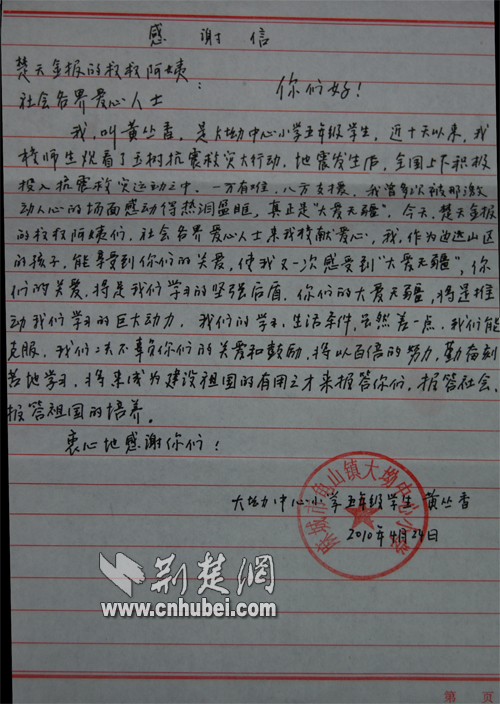 感谢信
楚天金报的叔叔阿姨
社会各界爱心人士 : 你们好!
我,叫黄丛香,是大坳中心小学五年级学生,近十天以来,我
校师生观看了玉树抗震救灾大行动,地震发生后,全国上下积极
投入抗震救灾运动之中,一方有难,八方支援,我曾多次被那激
动人心的场面感动得热泪盈眶,真正是“大爱无疆”。今天,楚天金报
的叔叔阿姨们,社会各界爱心人士来我校献爱心,我,作为边远山区
的孩子,能享受到你们的关爱,使我又一次感受到“大爱无疆”,你
们的关爱,将是我们学习的坚强后盾,你们的大爱无疆,将是推
动我们学习的巨大动力,我们的学习、生活条件,虽然差一点,我们能
克服,我们一定不辜负你们的关爱和鼓励,将以百倍的努力,勤奋刻
苦地学习,将来成为建设祖国的有用之才来报答你们,报答社会、
报答祖国的培养。
衷心地感谢你们!
大坳中心小学五年级学生 黄丛香
2010年4月24日
麻城市龟山镇大坳中心小学
荆楚网
www.cnhubei.com
第 页